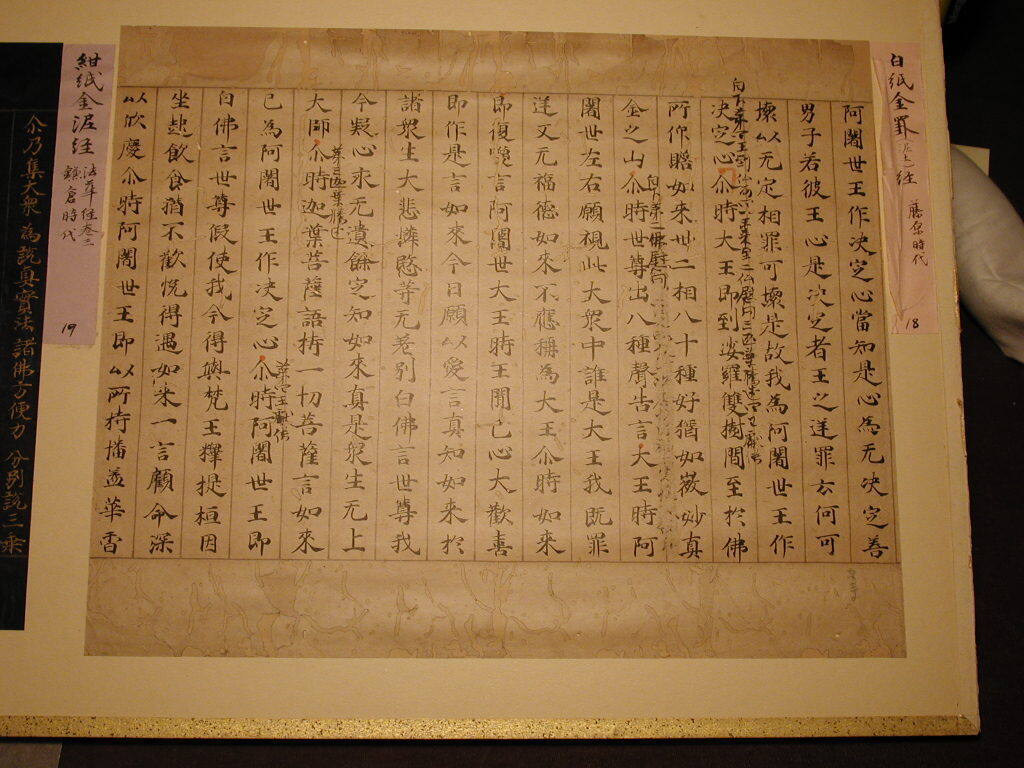 白紙金罫(泥之)経 藤原時代
18
阿闍世王作决定心當知是心為无决定善
男子若彼王心是决定者王之逆罪云何可
壞以无定相罪可壞是故我為阿闍世王作
决定心尒時大王即到娑羅雙樹間至於佛
所仰瞻如来丗二相八十種好猶如微妙真
金之山尒時世尊出八種聲告言大王時阿
闍世左右願視此大衆中誰是大王我既罪
逆又无福德如来不應稱為大王尒時如来
即復喚言阿闍世大王時王聞已心大歡喜
即作是言如来今日顧以愛言真知如来於
諸衆生大悲憐愍等无差別白佛言世尊我
今疑心永无遺餘定知如来真是衆生无上
大師尒時迦葉菩薩語持一切菩薩言如来
已為阿闍世王作决定心尒時阿闍世王即
白佛言世尊假使我今得與梵王釋提桓因
坐起飲食猶不歡悅得遇如来一言顧命深
以欣慶尒時阿闍世王即以所持幡盖華香
紺紙金泥経 法華経巻三
鎌倉時代
19
尒乃集大衆為說真實法諸佛方便力分別說三乘